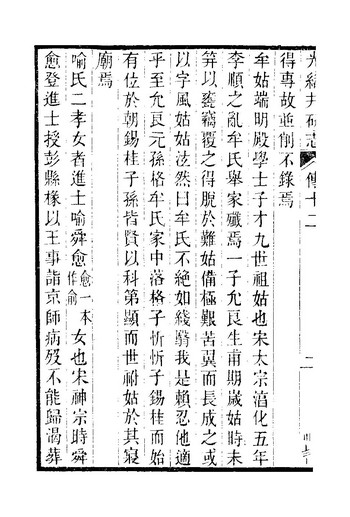 光緒井研志　傳十二　二
得專故並削不錄焉
牟姑端明殿學士子才九世祖姑也宋太宗淯化五年
李順之亂牟氏舉家殲焉一子允良生甫期歲姑時未
笄以甕竊覆之得脫於難姑備極艱苦翼而長成之或
以字風姑姑泫然曰牟氏不絕如綫翳我是賴忍他適
乎至允良元孫格牟氏家中落格子忻忻子錫桂而始
有位於朝錫桂子孫皆賢以科第顯而世祔姑於其寢
廟焉
喻氏二孝女者進士喻舜愈愈一本作俞女也宋神宗時舜
愈登進士授彭縣椽以王事詣京師病歿不能歸渴葬